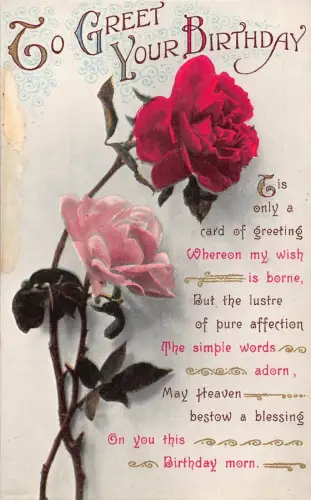 To Greet
Your Birthday
Tis
only a
card of greeting
Whereon my wish
is borne,
But the lustre
of pure affection
The simple words
adorn,
May Heaven
bestow a blessing
On you this
Birthday morn.